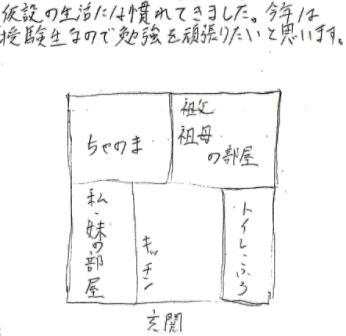 仮設の生活には慣れてきました。今年は
受験生なので勉強を頑張りたいと思います。
ちゃのま
祖父
祖母
の部屋
私・妹の部屋
キッチン
トイレ・ふろ
玄関